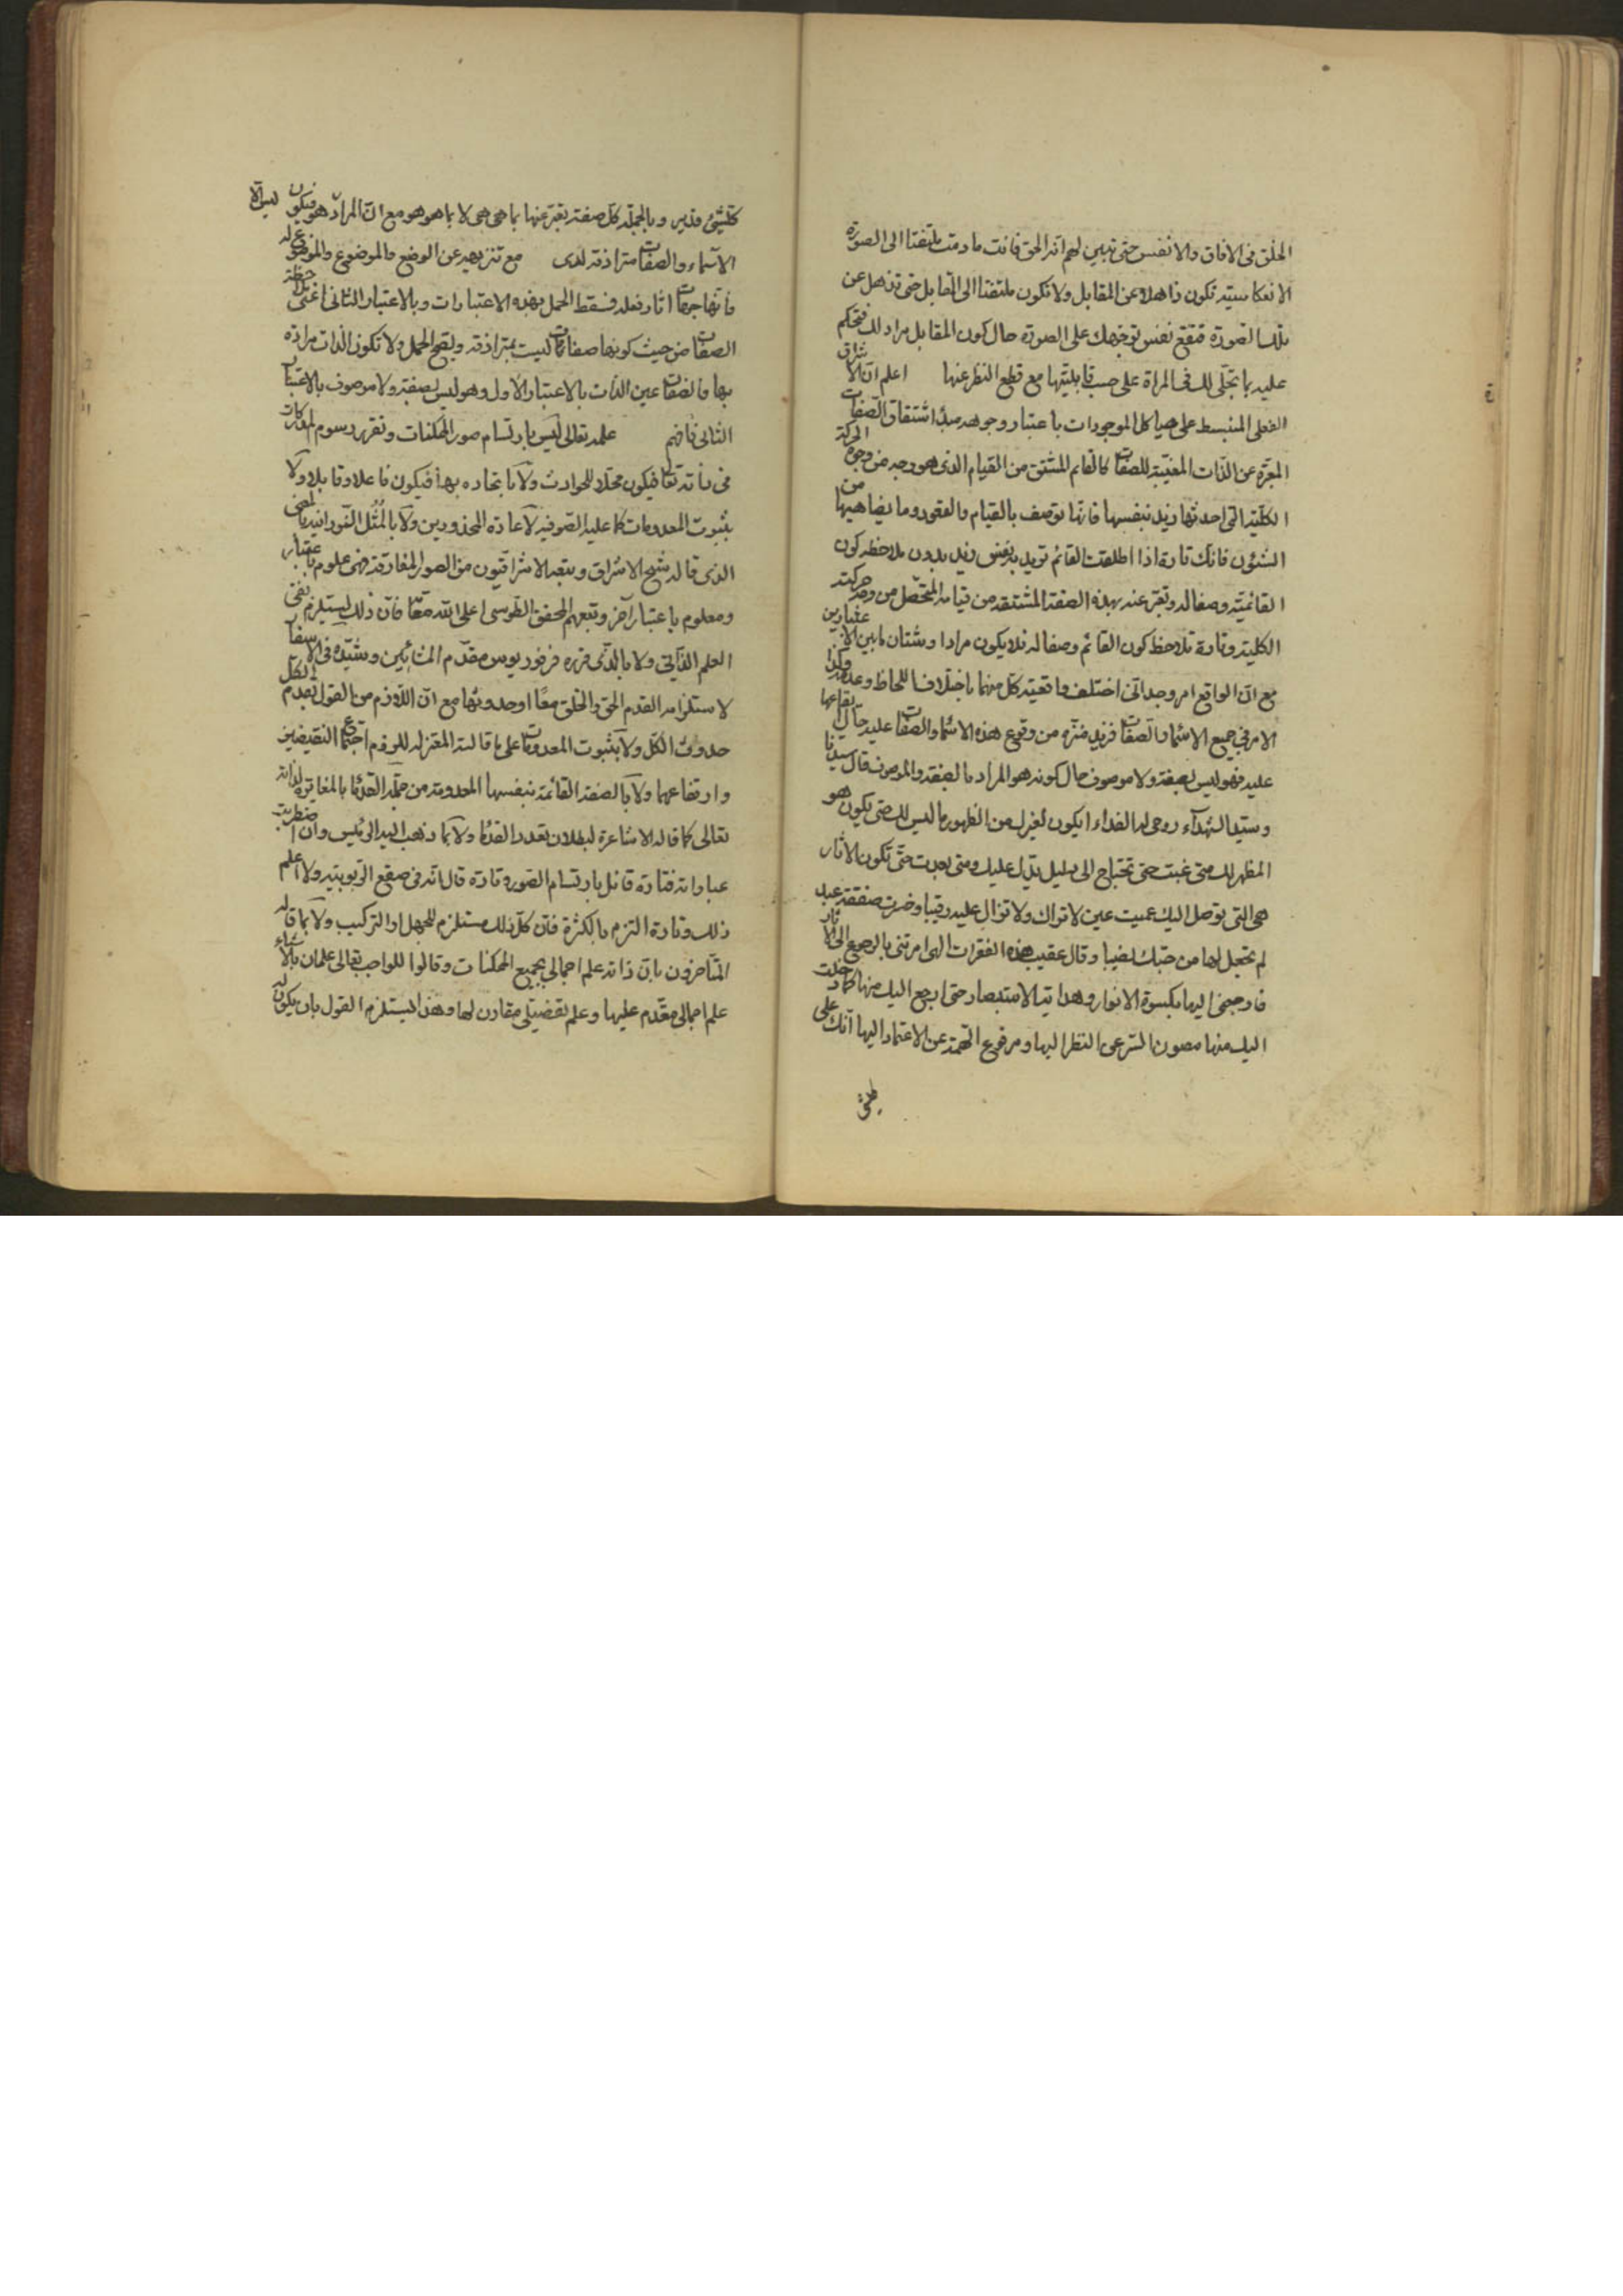 الخلق فی الافاق والانفس حتی تبین لهم انه الحق فانت ما دمت ملتفتا الی الصورة
الانعکاسیته تکون ذاهلا عن المقابل ولا تکون ملتفتا الی المقابل حتی تذهل عن
تلک الصورة فتقع نفس توجهک علی الصورة حال کون المقابل مراد لک فتحکم
علیه بما تجلی لک فی المراة علی حسب قابلیتها مع قطع النظر عنها اعلم ان الاشراق
الفعلی المنبسط علی هیاکل الموجودات باعتبار وجوهه مبدأ اشتقاق الصفات
المعبرة عن الذات المغیبة للصفات کالقائم المشتق من القیام الذی هو وجه من وجوه الحرکة
الکلیة التی احدثها زید بنفسها فانها توصف بالقیام والقعود وما یضاهیها من
الشئون فانک تارة اذا اطلقت القائم ترید به نفس زید بدون ملاحظه کون
القائمیة وصفا له وتعبر عنه بهذه الصفة المشتقة من قیامه المتحصل من وجه حرکته
الکلیة وتارة تلاحظ کون القائم وصفا له فلا یکون مرادا وشتان ما بین الاعتبارین
مع ان الواقع امر وجدانی اختلف واقعیة کل منهما باختلاف اللحاظ وعدمه وکذا
الامر فی جمیع الاسماء والصفات فزید منزه من وقوع هذه الاسماء والصفات علیه حال ایقاعها
علیه فهو لیس بصفة ولا موصوف حال کونه هو المراد بالصفة والموصوف قال سیدنا
وسید الشهدآء روحی له الفداء ایکون لغیرک من الظهور ما لیس لک حتی یکون هو
المظهر لک متی غبت حتی تحتاج الی دلیل یدل علیک ومتی بعدت حتی تکون الاثار
هی التی توصل الیک عمیت عین لا تراک ولا تزال علیه رقیبا وخسرت صفقة عبد
لم تجعل لها من حبک نصیبا وقال عقیب هذه الفقرات الهی امرتنی بالرجوع الی الاثار
فارجعنی الیها بکسوة الانوار وهدایة الاستبصار حتی ارجع الیک منها کما دخلت
الیک منها مصون السر عن النظر الیها ومرفوع الهمة عن الاعتماد الیها انک علی
کلشیء قدیر وبالجمله کل صفة تعبر عنها بما هی هی لا بما هو هو مع ان المراد هو فیکون
الاسماء والصفات مترادفة لدی مع تنزیهه عن الوضع والموضوع والموضوع له
وانها جهات اثار فعله فسقط الحمل بهذه الاعتبارات وبالاعتبار الثانی اعنی ملاحظة
الصفات من حیث کونها صفات کانت لیست بمترادفة ویصح الحمل ولا تکون الذات مرادة
بها فالصفات عین الذات بالاعتبار الاول وهو لیس بصفة ولا موصوف بالاعتبار
الثانی فافهم علمه تعالی لیس بارتسام صور الممکنات وتقرر رسوم المدرکات
فی ذاته تعا فیکون محلا للحوادث ولا باتحاده بها فیکون فاعلا وقابلا ولا
بثبوت المعدومات کما علیه الصوفیه لاعادة المحذورین ولا بالمُثُل النورانیة بالمعنی
الذی قاله شیخ الاشراق وتبعه الاشراقیون من الصور المفارقة فهی علوم باعتبار
ومعلوم باعتبار آخر وتبعهم المحقق الطوسی اعلی الله مقامه فان ذلک یستلزم نفی
العلم الذاتی ولا بالذی قرره فرفوریوس مقدّم المشائین وشیّده فی الاسفار
لاستلزامه القدم الحق والخلق معًا او حدوثهما مع ان اللازم من القول بقدم الکل
حدوث الکل ولا بثبوت المعدومات علی ما قالته المعتزله للزوم اجتماع النقیضین
وارتفاعهما ولا بالصفة القائمة بنفسها المعدودة من جملة القدماء بالمغایرة لذاته
تعالی کما قاله الاشاعرة لبطلان تعدد القدماء ولا بما ذهب الیه الرئیس وان اضطربت
عباراته فتارة قائل بارتسام الصور وتارة قال انه فی صقع الربوبیته ولا اعلم
ذلک وتارة التزم بالکثرة فان کل ذلک مستلزم للجهل او الترکیب ولا بما قاله
المتاخرون بان ذاته علم اجمالی بجمیع الممکنات وقالوا للواجب تعالی علمان بالاشیاء
علم اجمالی مقدم علیها وعلم تفصیلی مقارن لها وهذا یستلزم القول بان یکون له